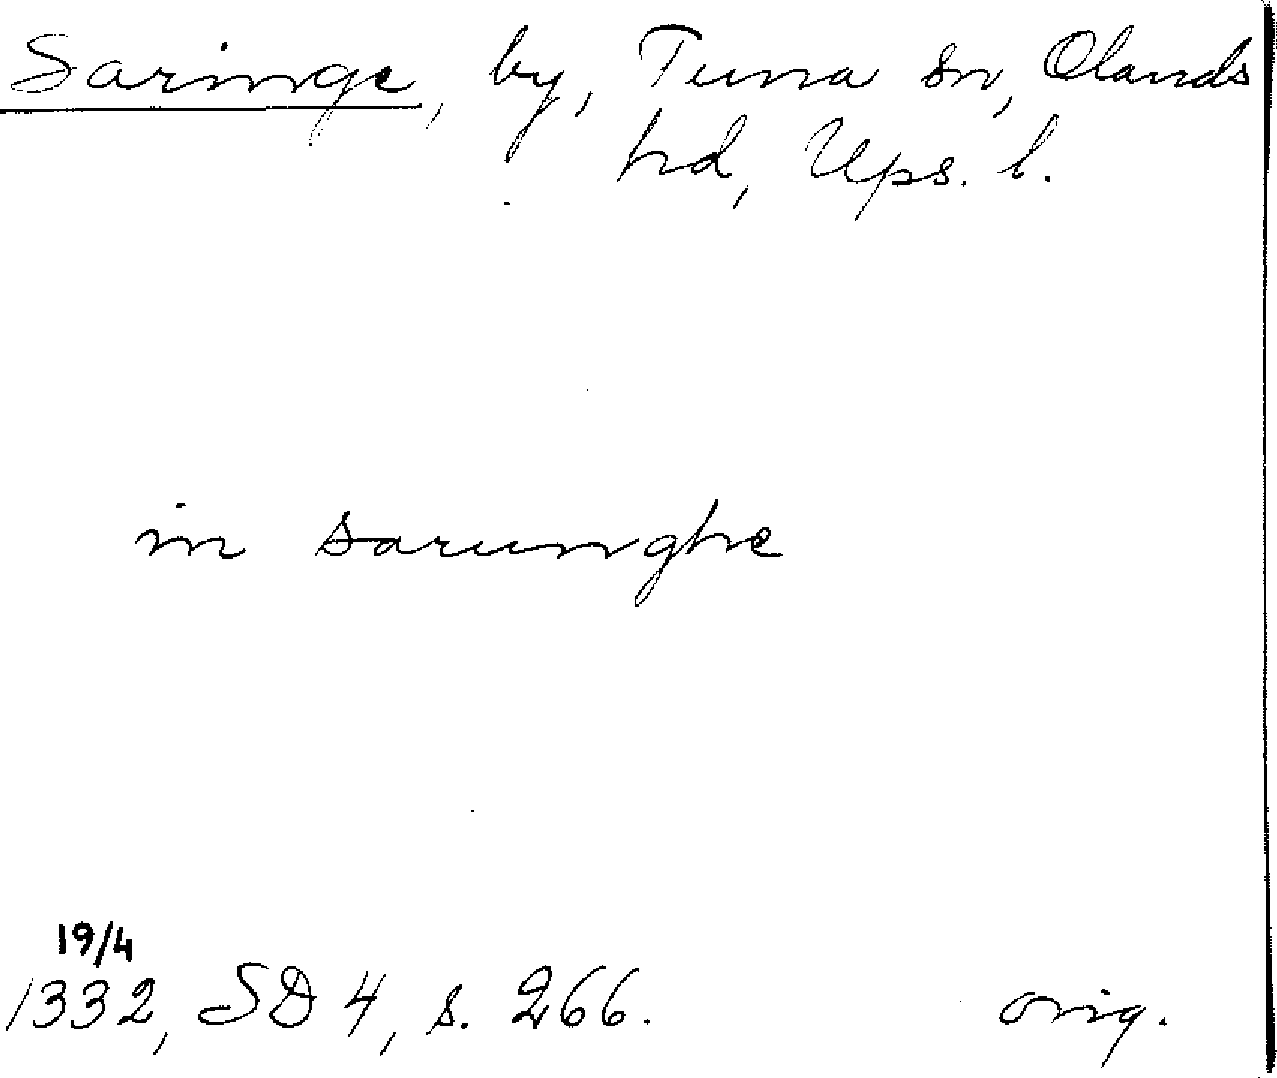 Saringe, by, Tuna sn, Olands
hd, Ups. l.
in sarunghe
19/4
1332, SD 4, s. 266. orig.